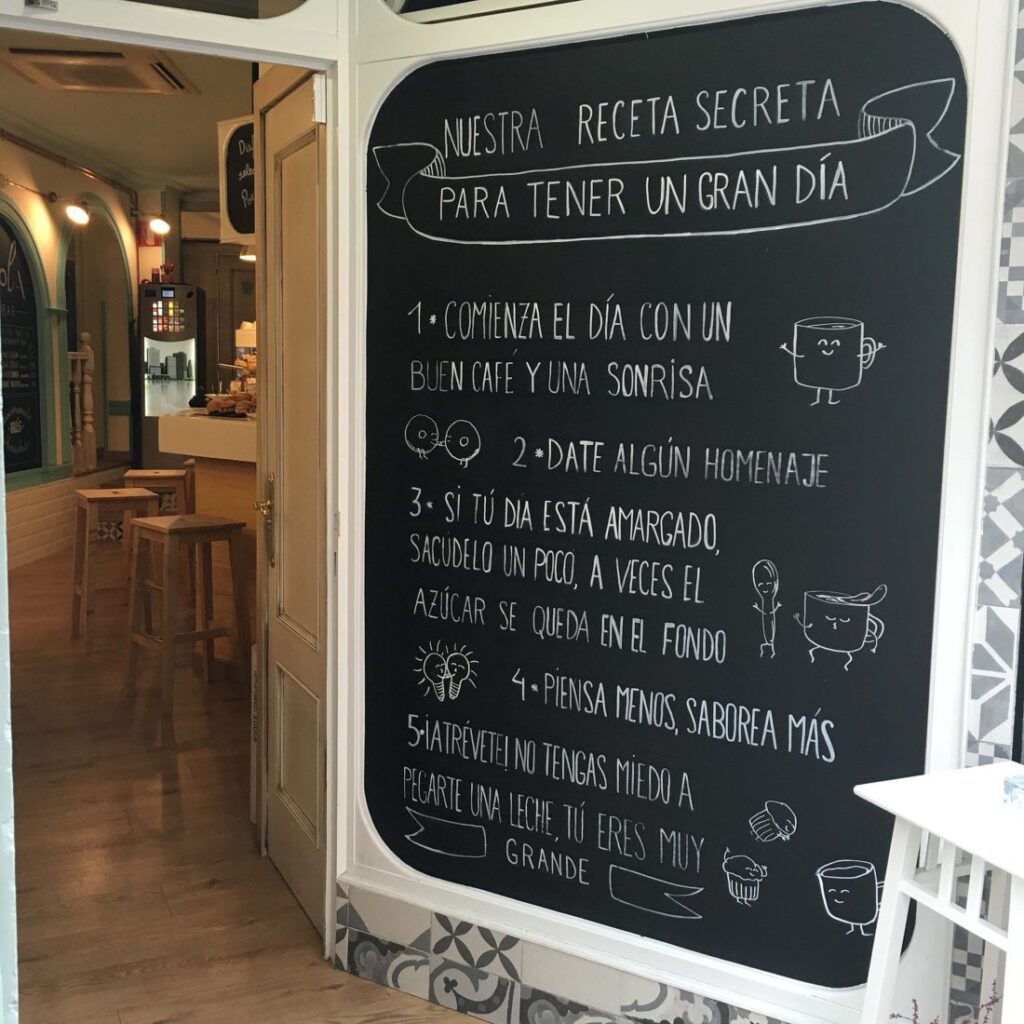 NUESTRA RECETA SECRETA
PARA TENER UN GRAN DÍA
1* COMIENZA EL DÍA CON UN
BUEN CAFÉ Y UNA SONRISA
2*DATE ALGÚN HOMENAJE
3* SI TÚ DIA ESTÁ AMARGADO,
SACÚDELO UN POCO, A VECES EL
AZÚCAR SE QUEDA EN EL FONDO
4* PIENSA MENOS, SABOREA MÁS
5*¡ATRÉVETE! NO TENGAS MIEDO A
PEGARTE UNA LECHE, TÚ ERES MUY
GRANDE